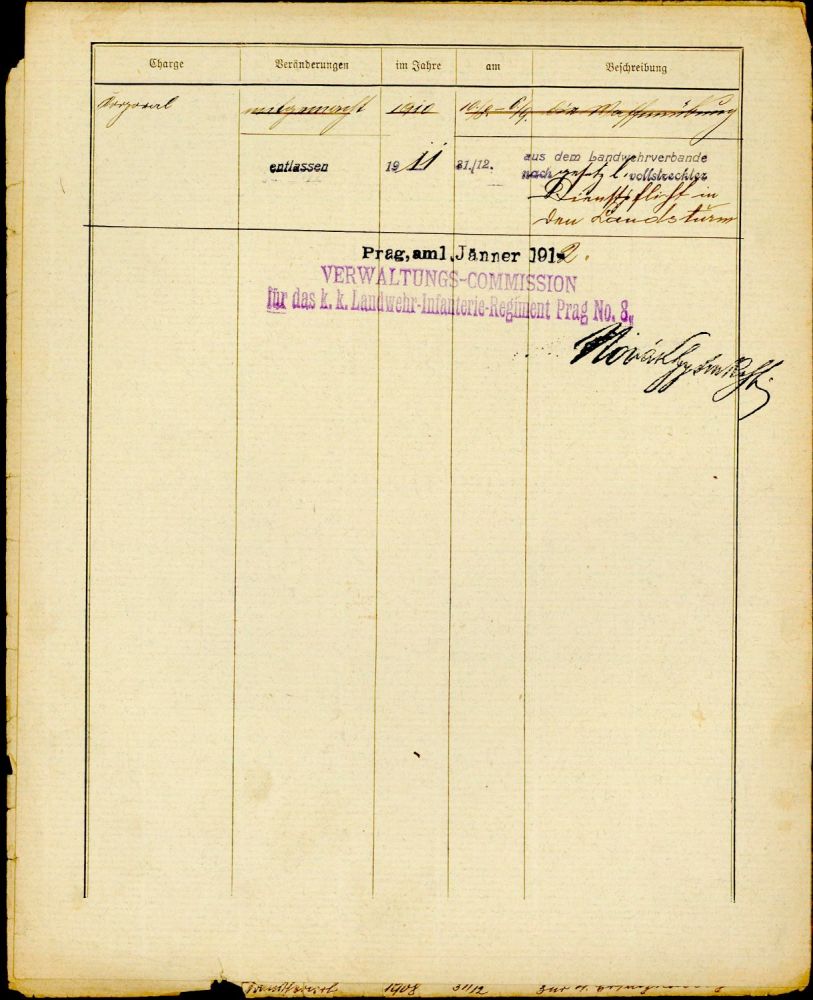 Charge Veränderungen im Jahre am Beschreibung
Corporal mitgemacht 1910 10./8.-6/9. die Waffenübung
entlassen 1911 31./12. aus dem Landwehrverbande
nach gesetzl. vollstreckter
Dienstpflicht in
den Landsturm
Prag, am 1. Jänner 1912.
VERWALTUNGS-COMMISSION
für das k. k. Landwehr-Infanterie-Regiment Prag No. 8.
Novák
1908 31/12 zur